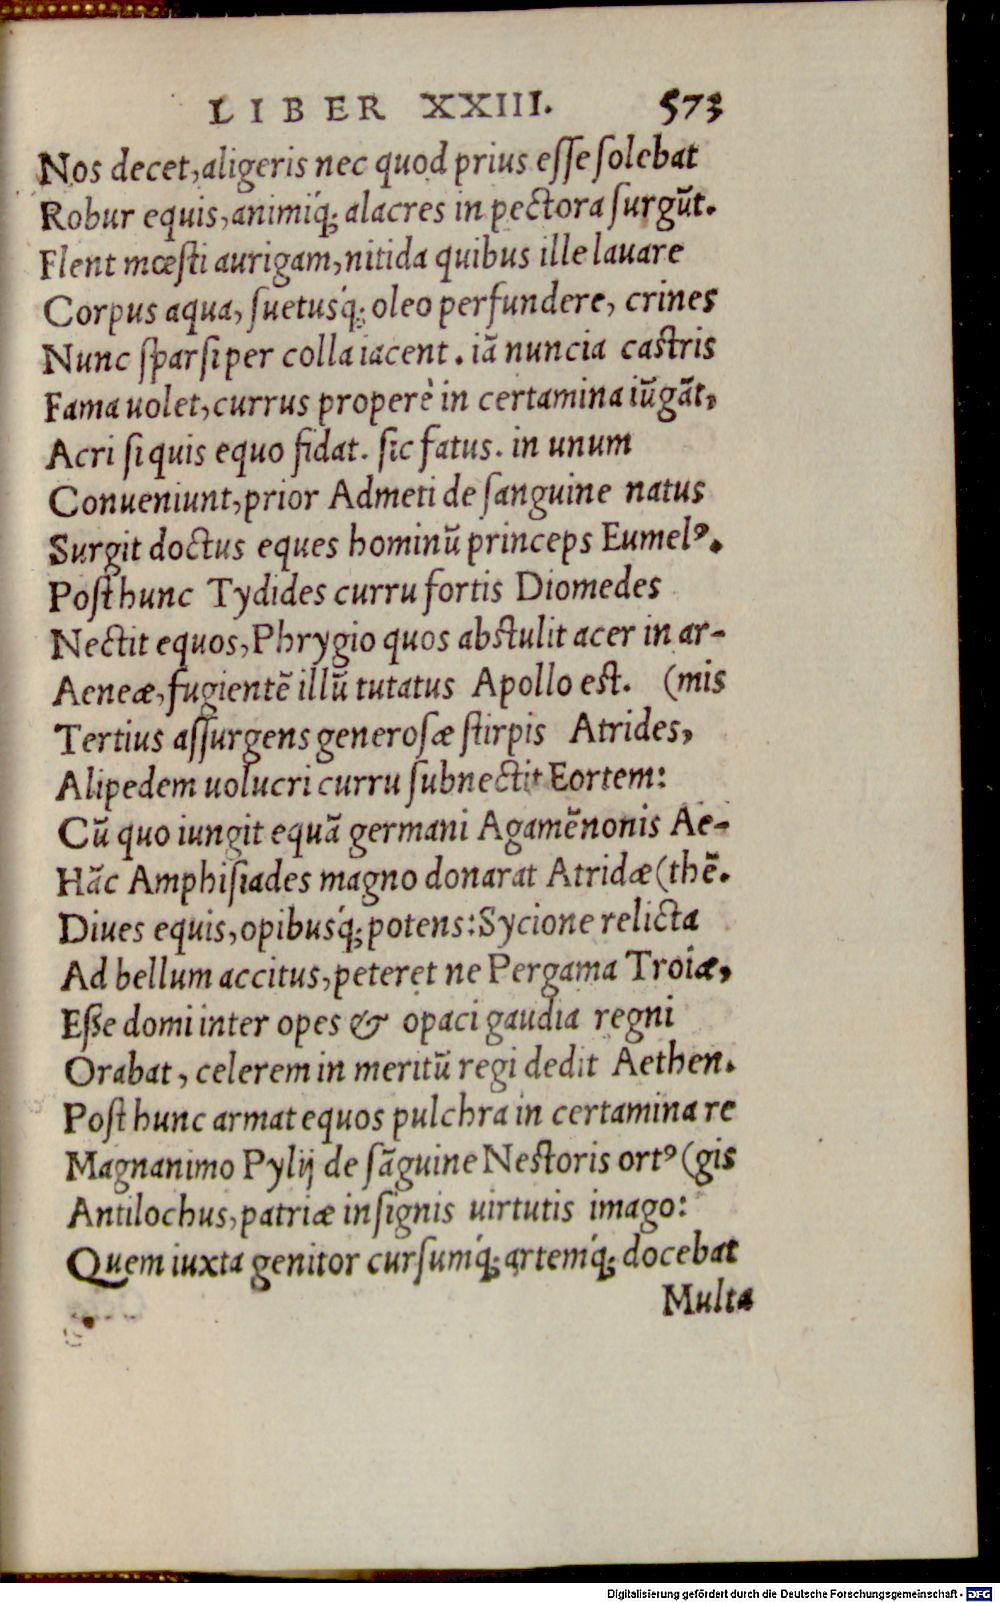 LIBER XXIII. 573
Nos decet, aligeris nec quod prius eſſe ſolebat
Robur equis, animiq́; alacres in pectora ſurgūt.
Flent mœſti aurigam, nitida quibus ille lauare
Corpus aqua, ſuetusq́; oleo perfundere, crines
Nunc ſparſi per colla iacent. iā nuncia caſtris
Fama uolet, currus properè in certamina iūgāt,
Acri ſi quis equo fidat. ſic fatus. in unum
Conueniunt, prior Admeti de ſanguine natus
Surgit doctus eques hominū princeps Eumelꝰ.
Poſt hunc Tydides curru fortis Diomedes
Nectit equos, Phrygio quos abſtulit acer in ar-
Aeneæ, fugientē illū tutatus Apollo eſt. (mis
Tertius aſſurgens generoſæ ſtirpis Atrides,
Alipedem uolucri curru ſubnectit Eortem:
Cū quo iungit equā germani Agamēnonis Ae-
Hāc Amphiſiades magno donarat Atridæ (thē.
Diues equis, opibusq́; potens: Sycione relicta
Ad bellum accitus, peteret ne Pergama Troiæ,
Eſſe domi inter opes & opaci gaudia regni
Orabat, celerem in meritū regi dedit Aethen.
Poſt hunc armat equos pulchra in certamina re
Magnanimo Pylij de ſāguine Neſtoris ortꝰ (gis
Antilochus, patriæ inſignis uirtutis imago:
Quem iuxta genitor curſumq́; artemq́; docebat
Multa
Digitalisierung gefördert durch die Deutsche Forschungsgemeinschaft - DFG